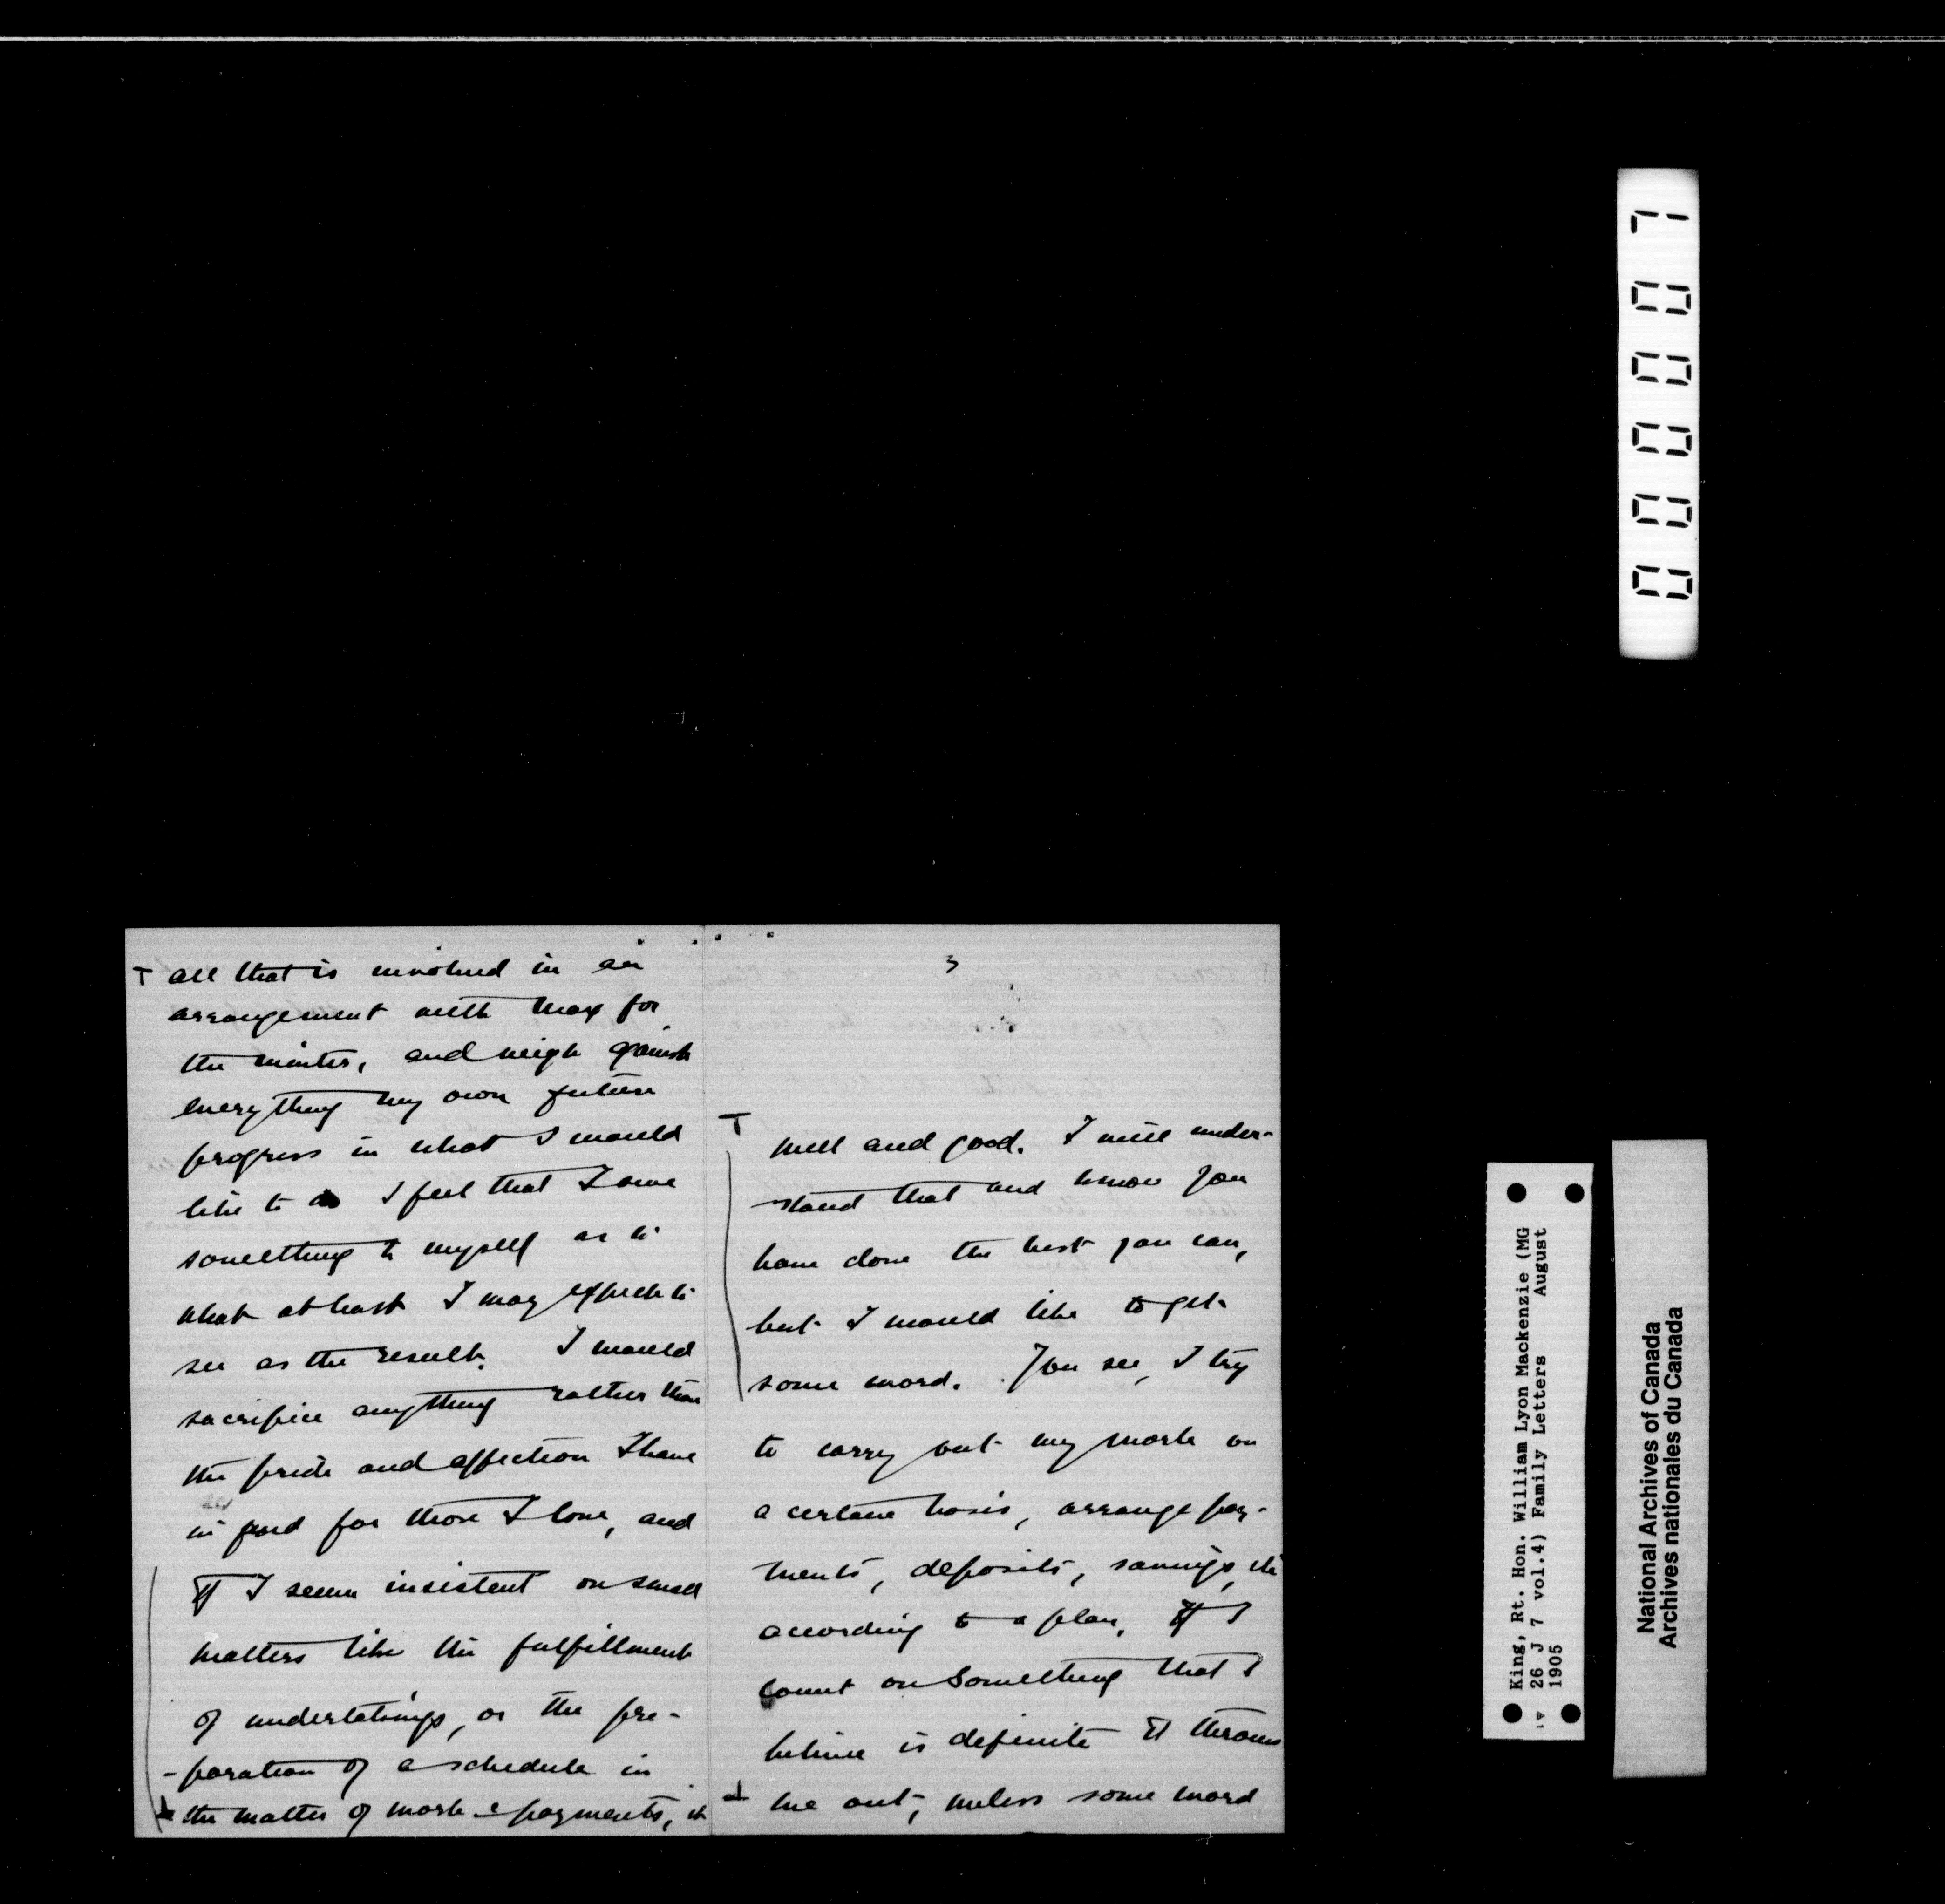 all that is involved in an
arrangement with Max for
the winter, and weigh against
everything my own future
progress in what I would
like to do I feel that I owe
something to myself as to
what at least I may expect to
see as the result. I would
sacrifice anything rather than
the pride and affection I have
in and for those I love, and
if I seem insistent on small
matters like the fulfillment
of undertakings, or the pre-
-paration of a schedule in
the matter of work & payments, it
3
well and good. I will under-
stand that and know you
have done the best you can,
but I would like to get
some word. You see, I try
to carry out my work on
a certain basis, arrange pay-
ments, deposits, savings, etc
according to a plan. If I
count on something that I
believe is definite it throws
me out, unless some word
0000071
King, Rt. Hon. William Lyon Mackenzie (MG
26 J 7 vol.4) Family Letters August
1905
National Archives of Canada
Archives nationales du Canada